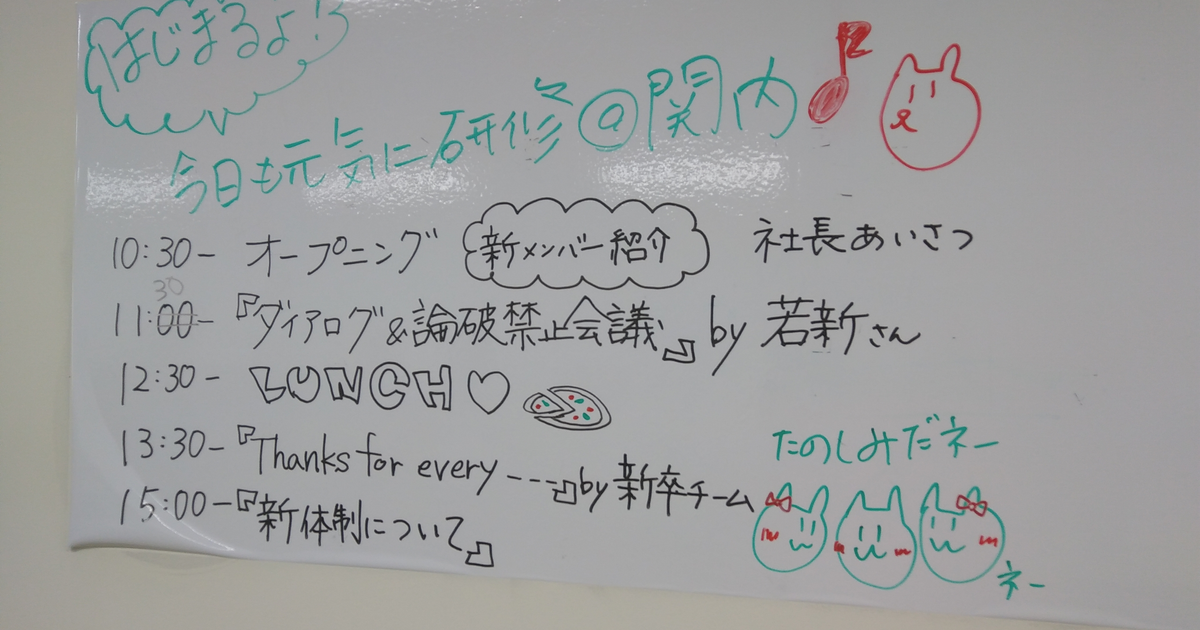 はじまるよ!
今日も元気に研修@関内
10:30- オープニング 新メンバー紹介 社長あいさつ
30
11:00- 『ダイアログ&論破禁止会議』 by 若新さん
12:30- LUNCH♡
13:30-『Thanks for every---』by新卒チーム
15:00-『新体制について』
たのしみだネー
ネー